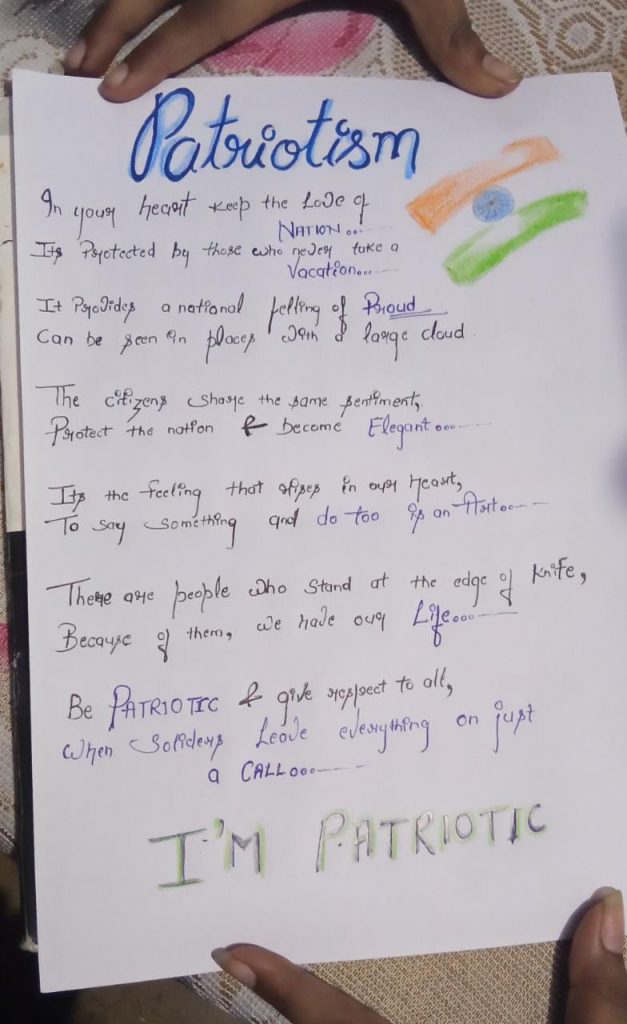 Patriotism
In your heart keep the Love of
NATION...
Its Protected by those who never take a
Vacation...
It Provides a national felling of Proud
Can be seen in places with a large cloud.
The citizens share the same sentiment,
Protect the nation & become Elegant...
Its the feeling that arises in our heart,
To say something and do too is an Art...
There are people who stand at the edge of knife,
Because of them, we have our Life...
Be PATRIOTIC & give respect to all,
When Soliders Leave everything on just
a CALL...
I'M PATRIOTIC